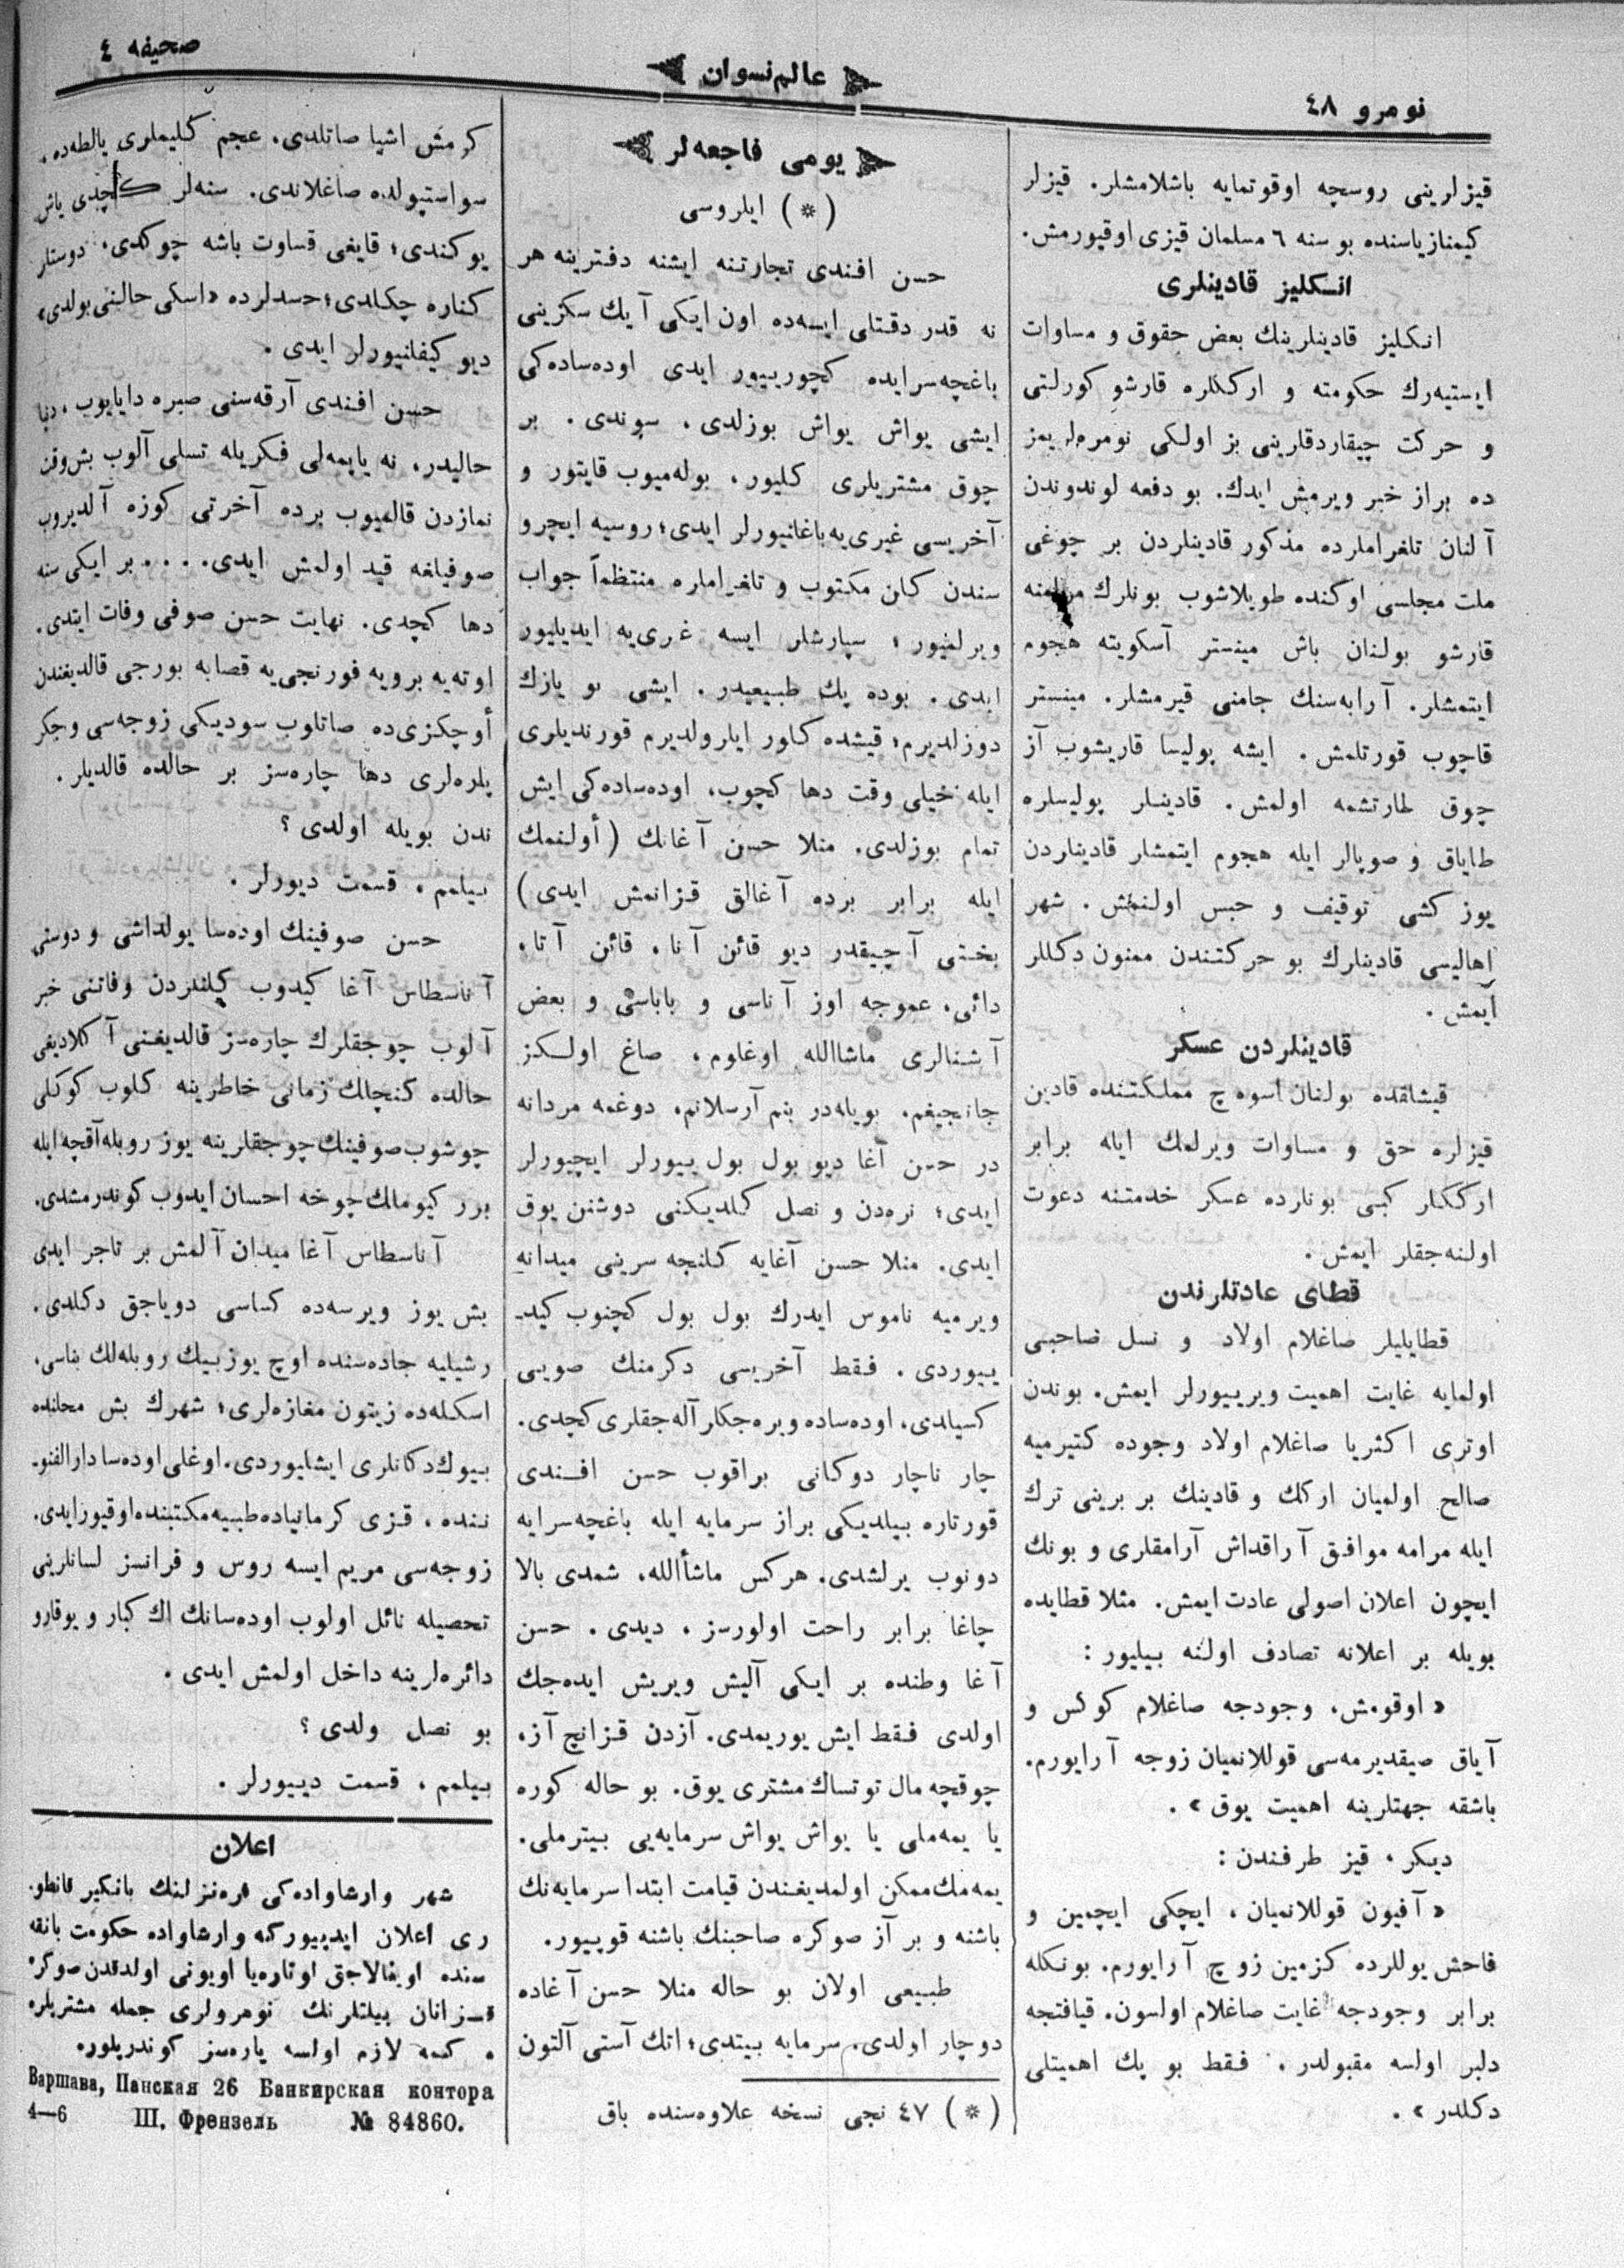 نومرو ٤٨
عالم نسوان
صحيفه ٤
قيزلرينى روسچه اوقوتمايه باشلامشلر. قيزلر
كيمنازياسنده بو سنه ٦ مسلمان قيزى اوقيورمش.
انسكليز قادينلرى
انكليز قادينلرينك بعض حقوق و مساوات
ايستيه‌رك حكومته و ارككلره قارشو كورلتى
و حركت چيقاردقارينى بز اولكى نومره‌لريمز
ده براز خبر ويرمش ايدك. بو دفعه لوندوندن
آلنان تلغرامارده مذكور قادينلردن بر چوغى
ملت مجلسى اوكنده طوپلاشوب بونلرك
قارشو بولنان باش مينستر آسكويته هجوم
ايتمشلر. آرابه‌سنك جامنى قيرمشلر. مينستر
قاچوب قورتلمش. ايشه پوليسا قاريشوب آز
چوق طارتشمه اولمش. قادينلر پوليسلره
طاياق و صوپالر ايله هجوم ايتمشلر قادينلردن
يوز كشى توقيف و حبس اولنمش. شهر
اهاليسى قادينلرك بو حركتندن ممنون دكللر
ايمش.
قادينلردن عسكر
قيشاقده بولنان اسوه‌چ مملكتنده قادين
قيزلره حق و مساوات ويرلمك ايله برابر
ارككلر كبى بونلرده عسكر خدمتنه دعوت
اولنه‌جقلر ايمش.
قطاى عادتلرندن
قطايليلر صاغلام اولاد و نسل صاحبى
اولمايه غايت اهميت ويرييورلر ايمش. بوندن
اوترى اكثريا صاغلام اولاد وجوده كتيرميه
صالح اولميان ارك‌ك و قادينك بر برينى ترك
ايله مرامه موافق آراقداش آرامقلرى و بونك
ايچون اعلان اصولى عادت ايمش. مثلا قطايده
بويله بر اعلانه تصادف اولنه بيليور:
«اوقومش، وجودجه صاغلام كوكس و
آياق صيقديرمه‌سى قوللانميان زوجه آرايورم.
باشقه جهتلرينه اهميت يوق».
ديكر، قيز طرفندن:
«آفيون قوللانميان، ايچكى ايچمين و
فاحش يوللرده كزمين زوج آرايورم. بونكله
برابر وجودجه غايت صاغلام اولسون. قيافتجه
دلبر اولسه مقبولدر. فقط بو پك اهميتلى
دكلدر».
يومى فاجعه‌لر
(*) ايلروسى
حسن افندى تجارتنه ايشنه دفترينه هر
نه قدر دقتلى ايسه‌ده اون ايكى آيك سكزينى
باغچه‌سرايده كچورييور ايدى اوده‌ساده‌كى
ايشى يواش يواش بوزلدى، سوندى. بر
چوق مشتريلرى كليور، بوله‌ميوب قايتور و
آخريسى غيرى‌يه باغلانيورلر ايدى؛ روسيه ايچرو
سندن كلن مكتوب و تلغراماره منتظماً جواب
ويرلميور؛ سپارشلر ايسه غيرى‌يه ايديليور
ايدى. بوده پك طبيعيدر. ايشى بو يازك
دوزلديرم؛ قيشده كلور ايلرولديرم قورنديلرى
ايله خيلى وقت دها كچوب، اوده‌ساده‌كى ايش
تمام بوزلدى. منلا حسن آغانك (أولنمك
ايله برابر برده آغالق قزانمش ايدى)
بختى آچيقدر ديو قائن آنا، قائن آتا،
دائى، عموجه اوز آناسى و باباسى و بعض
آشنالرى ماشاالله اوغلوم، صاغ اولكز
جانجيغم. بويله‌در بنم آرسلانم، دوغمه مردانه
در حسن آغا ديو بول بول ييورلر ايچيورلر
ايدى؛ نره‌دن و نصل كلديكنى دوشنن يوق
ايدى. منلا حسن آغايه كلنجه سرينى ميدانه
ويرميه ناموس ايدرك بول بول كچنوب كيد-
ييوردى. فقط آخريسى دكرمنك صويى
كسيلدى. اوده‌ساده ويره‌جكلر آله‌جقلرى كچدى.
چار ناچار دوكانى براقوب حسن افندى
قورتاره بيلديكى براز سرمايه ايله باغچه‌سرايه
دونوب يرلشدى. هركس ماشأالله، شمدى بالا
چاغا برابر راحت اولورسز، ديدى. حسن
آغا وطنده بر ايكى آليش ويريش ايده‌جك
اولدى فقط ايش يوريمدى. آزدن قزانچ آز،
چوقچه مال توتساك مشترى يوق. بو حاله كوره
يا يمه‌ملى يا يواش يواش سرمايه‌يى بيترملى.
يمه‌مك ممكن اولمديغندن قيامت ابتدا سرمايه‌نك
باشنه و بر آز صوكره صاحبنك باشنه قوپيور.
طبيعى اولان بو حاله منلا حسن آغاده
دوچار اولدى. سرمايه بيتدى؛ اتك آستى آلتون
(*) ٤٧ نجى نسخه علاوه‌سنده باق
كرمش اشيا صاتلدى. عجم كليملرى يالطه‌ده،
سواستپولده صاغلاندى. سنه‌لر كچدى ياش
يوكندى؛ قايغى قساوت باشه چوكدى. دوستلر
كناره چكلدى؛ حسدلرده «اسكى حالنى بولدى»
ديو كيفلنيورلر ايدى.
حسن افندى آرقه‌سنى صبره دايايوب، دنيا
حاليدر، نه ياپمه‌لى فكريله تسلى آلوب بش وقت
نمازدن قالميوب برده آخرتى كوزه آلديروب
صوفيلغه قيد اولمش ايدى.... بر ايكى سنه
دها كچدى. نهايت حسن صوفى وفات ايتدى.
اوته‌يه برويه فورنجى‌يه قصابه بورجى قالديغندن
أوچكزى‌ده صاتلوب سوديكى زوجه‌سى و جكر
پاره‌لرى دها چاره‌سز بر حالده قالديلر.
ندن بويله اولدى؟
بيلمم، قسمت ديورلر.
حسن صوفينك اوده‌سا يولداشى و دوستى
آناسطاس آغا كيدوب كلندردن وفاتنى خبر
آلوب چوجقلرك چاره‌سز قالديغنى آكلاديغى
حالده كنچلك زمانى خاطرينه كلوب كوكلى
جوشوب صوفينك چوجقلرينه يوز روبله آقچه ايله
برر كيوملك چوخه احسان ايدوب كوندرمشدى.
آناسطاس آغا ميدان آلمش بر تاجر ايدى
بش يوز ويرسه‌ده كساسى دوياجق دكلدى.
رشيليه جاده‌سنده اوچ يوزبيك روبله‌لك بناسى،
اسكله‌ده زيتون مغازه‌لرى؛ شهرك بش محلنده
بيوك دكانلرى ايشليوردى. اوغلى اوده‌سا دارالفنو-
ننده، قزى كرمانياده طبيه مكتبنده اوقيور ايدى.
زوجه‌سى مريم ايسه روس و فرانسز لسانلرينى
تحصيله نائل اولوب اوده‌سانك اك كبار و يوقارو
دائره‌لرينه داخل اولمش ايدى.
بو نصل ولدى؟
بيلمم، قسمت ديييورلر.
اعلان
شهر وارشاواده‌كى فره‌نزلنك بانكير قانطو-
رى اعلان ايدييوركه وارشاواده حكومت بانقه
سنده اوينالاجق لوتاره‌يا اويونى اولدقدن صوكره
قزانان بيلتلرنك نومرولرى جمله مشتريلره
و كيمه لازم اولسه پاره‌سز كوندريلور.
Варшава, Панская 26 Банкирская контора
4—6 Ш. Френзель № 84860.